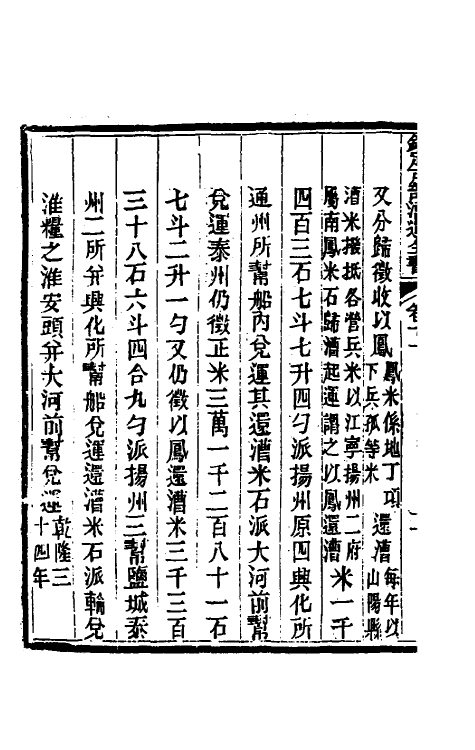 欽定戶部漕運全書 卷十一
又分歸徵收以鳳鳳米係地丁項下兵孤等米還漕每年以山陽縣
漕米撥抵各營兵米以江寧揚州二府屬南鳳米石歸漕起運謂之以鳳還漕米一千
四百三石七斗七升四勺派揚州原四興化所
通州所幫船內兌運其還漕米石派大河前幫
兌運泰州仍徵正米三萬一千二百八十一石
七斗二升一勺又仍徵以鳳還漕米三千三百
三十八石六斗四合九勺派揚州三幫鹽城泰
州二所弁興化所幫船兌運還漕米石派輪兌
淮糧之淮安頭弁大河前幫兌運乾隆三十四年